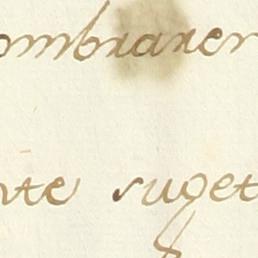 ombraren
nte suget